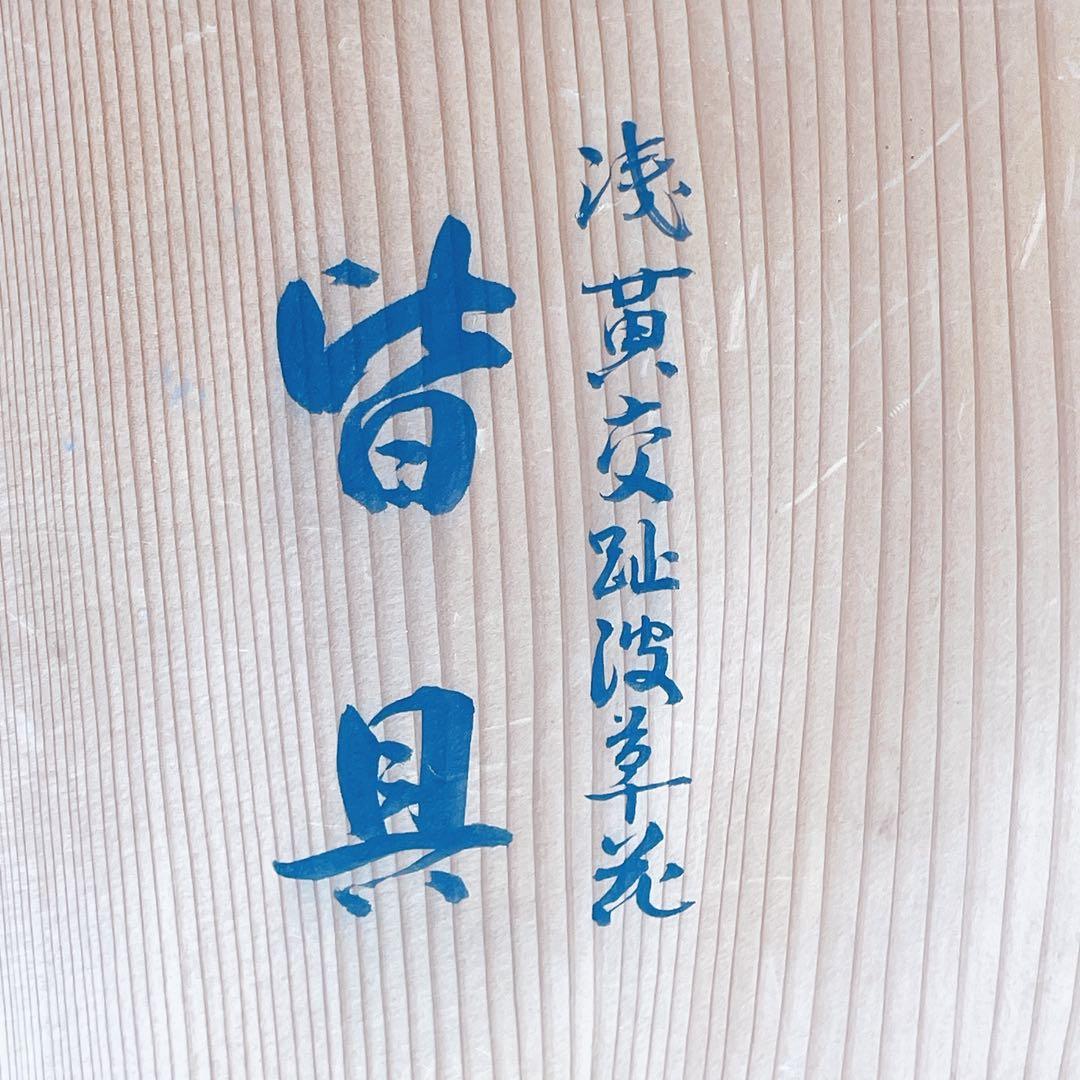 浅黄交趾波草花
皆具